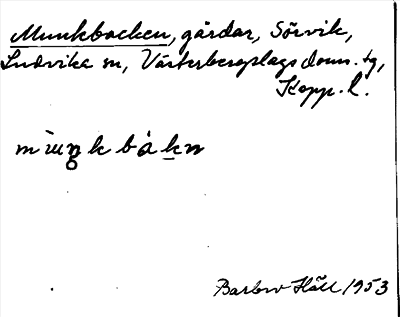 Munkbacken, gårdar, Sörvik,
Ludvika sn, Västerbergslags doms. tg,
Kopp. l.
Barbro Häll 1953